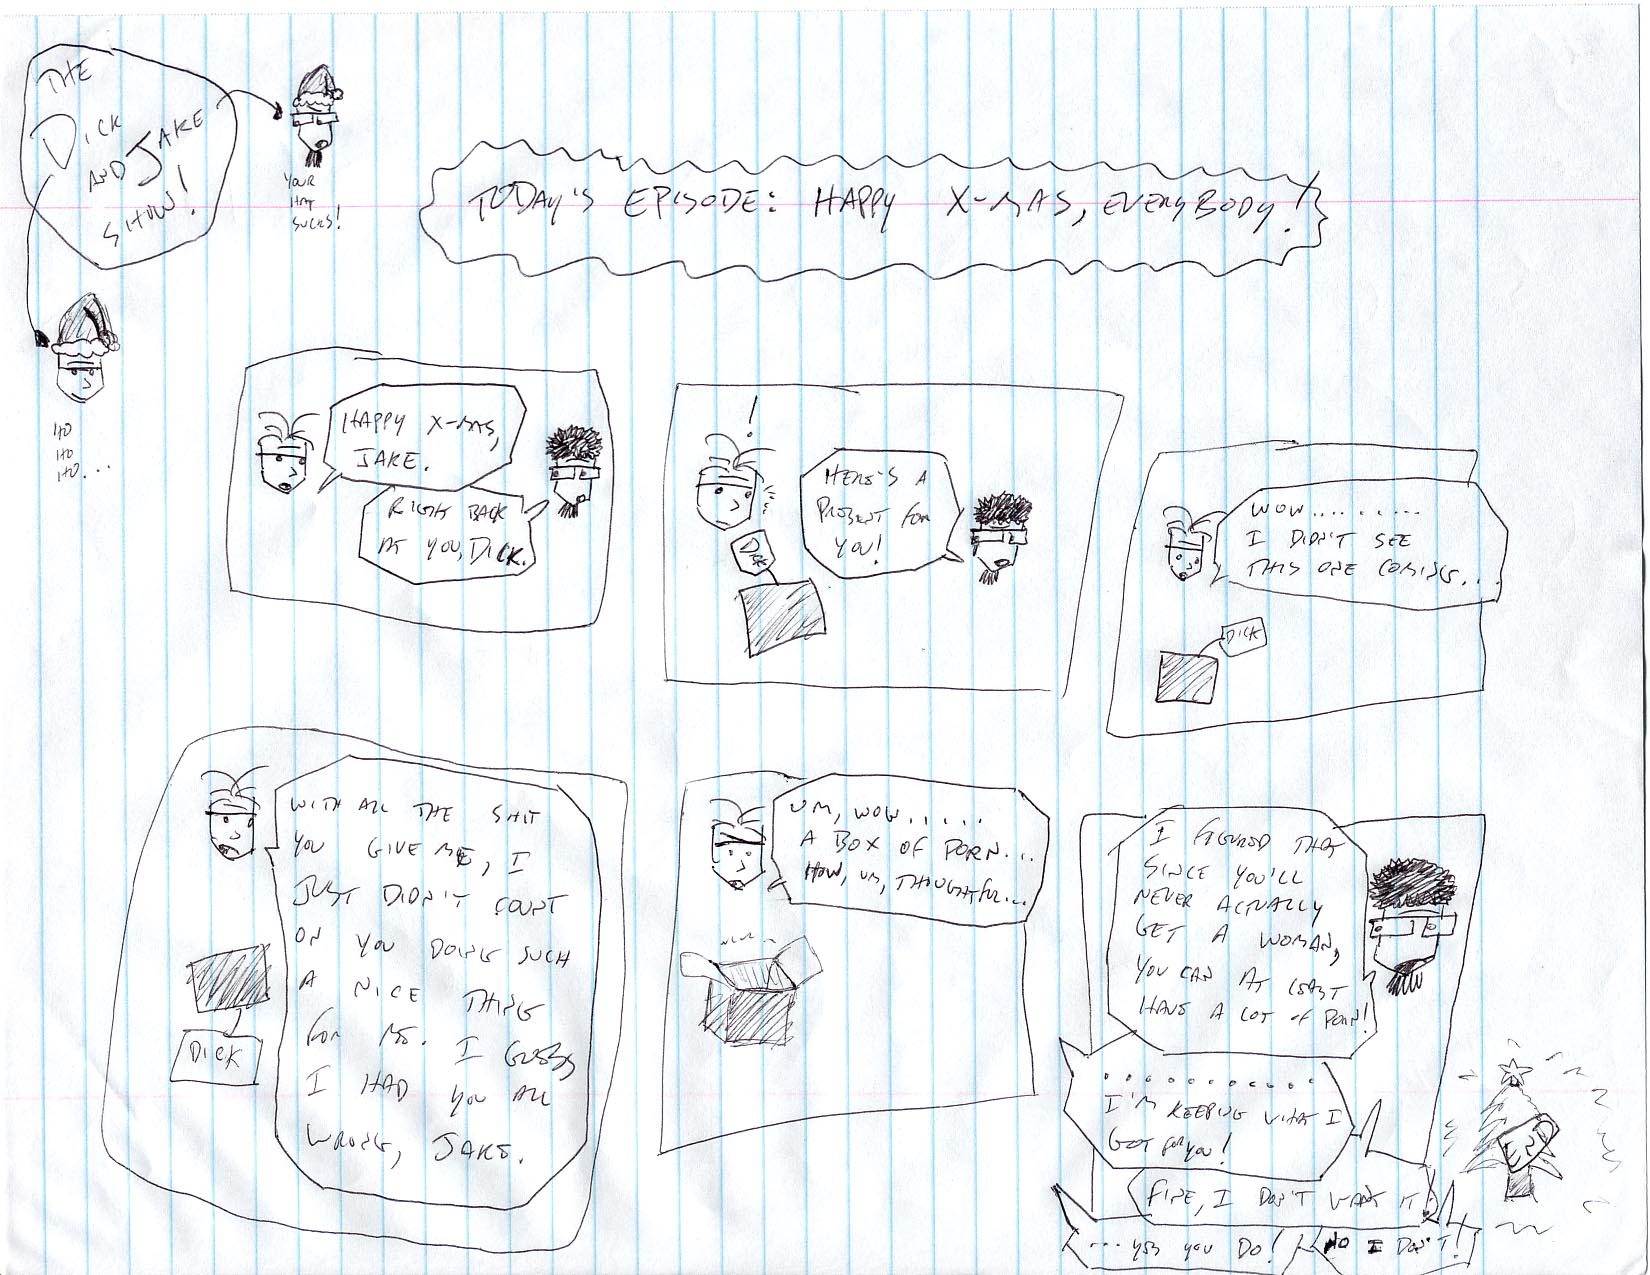 THE
DICK
AND JAKE
SHOW!
YOUR
HAT
SUCKS!
HO
HO
HO...
TODAY'S EPISODE: HAPPY X-MAS, EVERYBODY!
HAPPY X-MAS,
JAKE.
RIGHT BACK
AT YOU, DICK.
!
HERE'S A
PRESENT FOR
YOU!
DICK
WOW..........
I DIDN'T SEE
THIS ONE COMING...
DICK
WITH ALL THE SHIT
YOU GIVE ME, I
JUST DIDN'T COUNT
ON YOU DOING SUCH
A NICE THING
FOR ME. I GUESS
I HAD YOU ALL
WRONG, JAKE.
DICK
UM, WOW.....
A BOX OF PORN...
HOW, UM, THOUGHTFUL...
I FIGURED THAT
SINCE YOU'LL
NEVER ACTUALLY
GET A WOMAN,
YOU CAN AT LEAST
HAVE A LOT OF PORN!
............
I'M KEEPING WHAT I
GOT FOR YOU!
FINE, I DON'T WANT IT!
...YES YOU DO!
NO I DON'T!